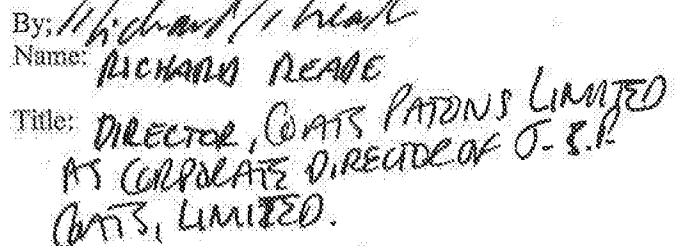 By:
Name: RICHARD READE
Title: DIRECTOR, COATS PATONS LIMITED
AS CORPORATE DIRECTOR OF J. & P.
COATS, LIMITED.